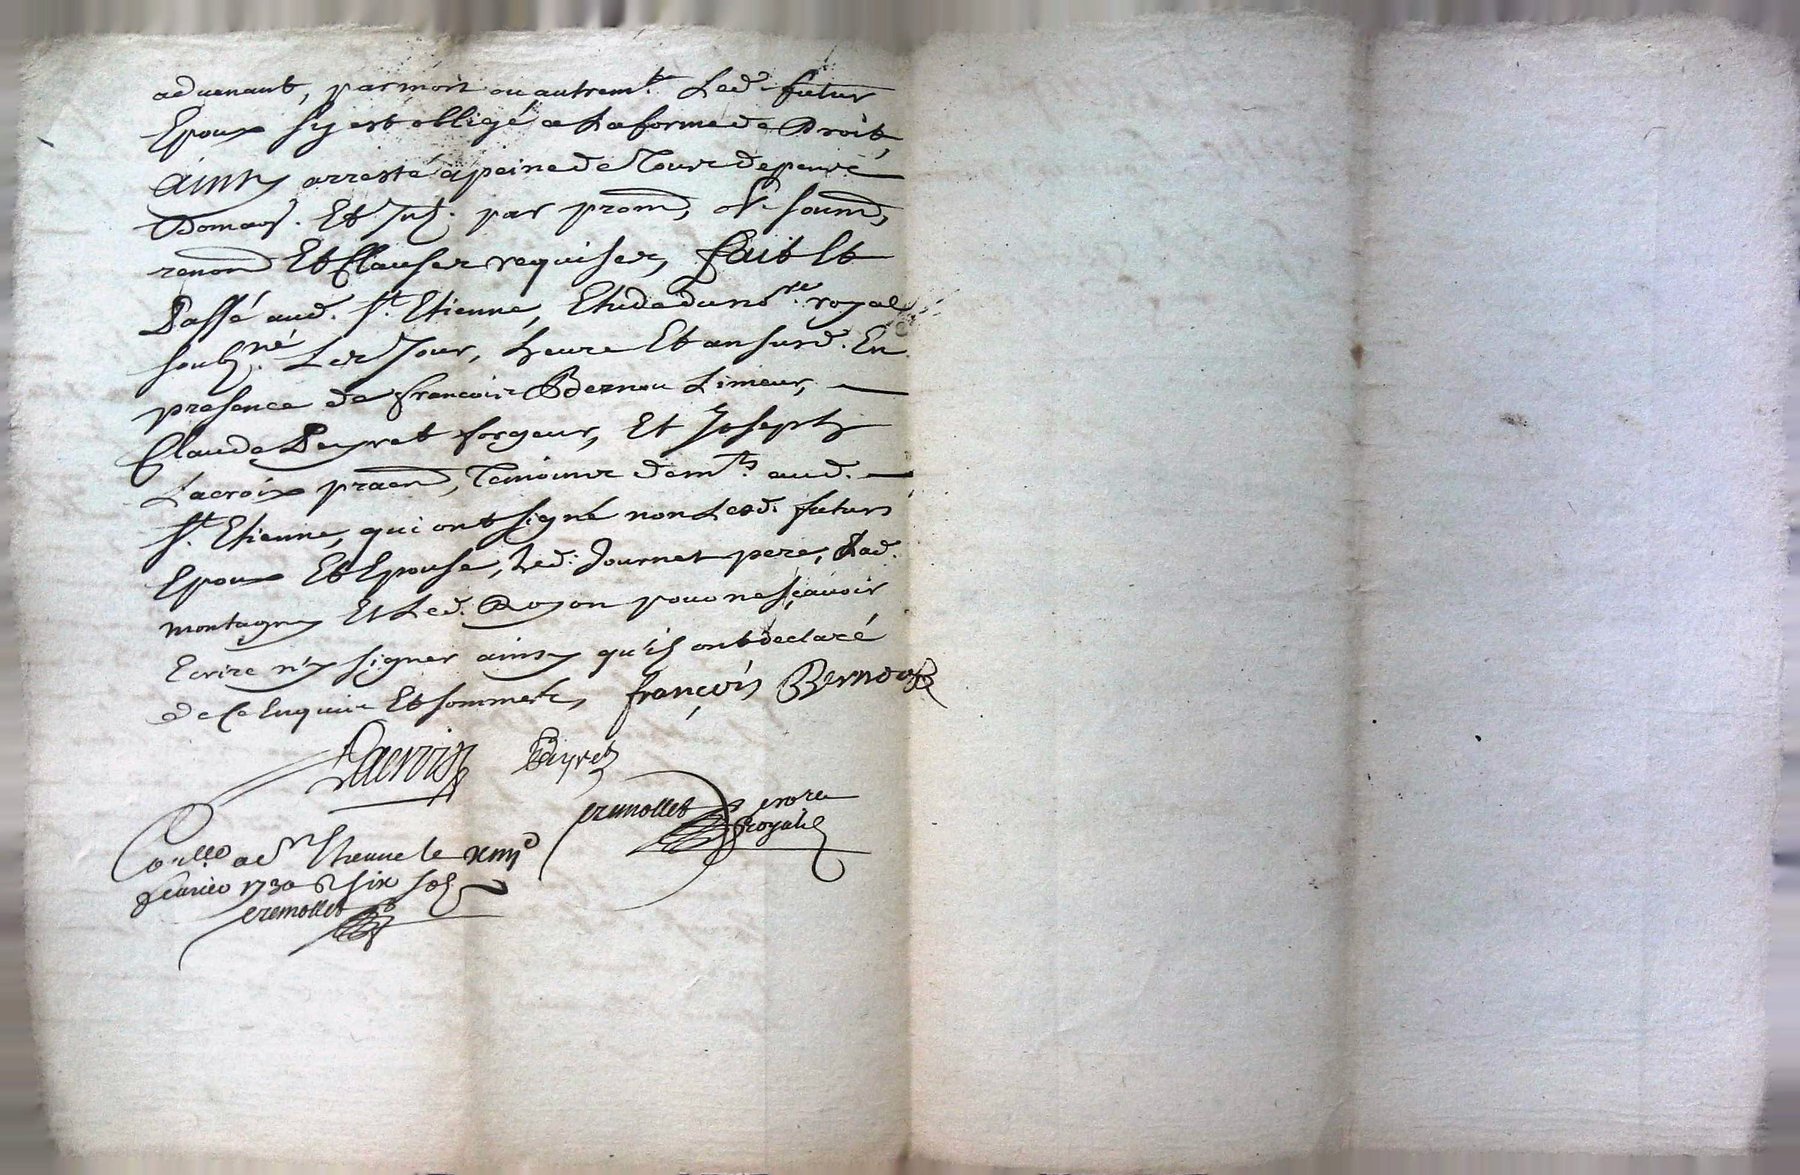 advenant, par mort ou autremt. Led. futur
Epoux sy est obligé a la forme de Droit,
ainsy arresté a peine de tous depens
Domag. Et Int. par prom, ob. soumo,
renon Et Clauses requises, fait Et
Passé aud. St. Etienne, Etude du nore. royal
soubné. Les Jour, heure Et an susd. En
presence de francois Bernou Limeur,
Claude Peyret forgeur, Et Joseph
Lacroix praen, temoins demts. aud.
St. Etienne, qui ont signé non Lesd. futurs
Epoux Et Epouse, Led. Journet pere, Lad.
montagny Et Led. Royon pour ne sçavoir
Ecrire n'y signer ainsy qu'ils ont declaré
de Ce Enquis Et sommés, françois Bernou
Lacroix Peyret
cremollet nore
Royal
Conllé a St Etienne le xiiije
feuvrier 1730 R six sols
cremollet